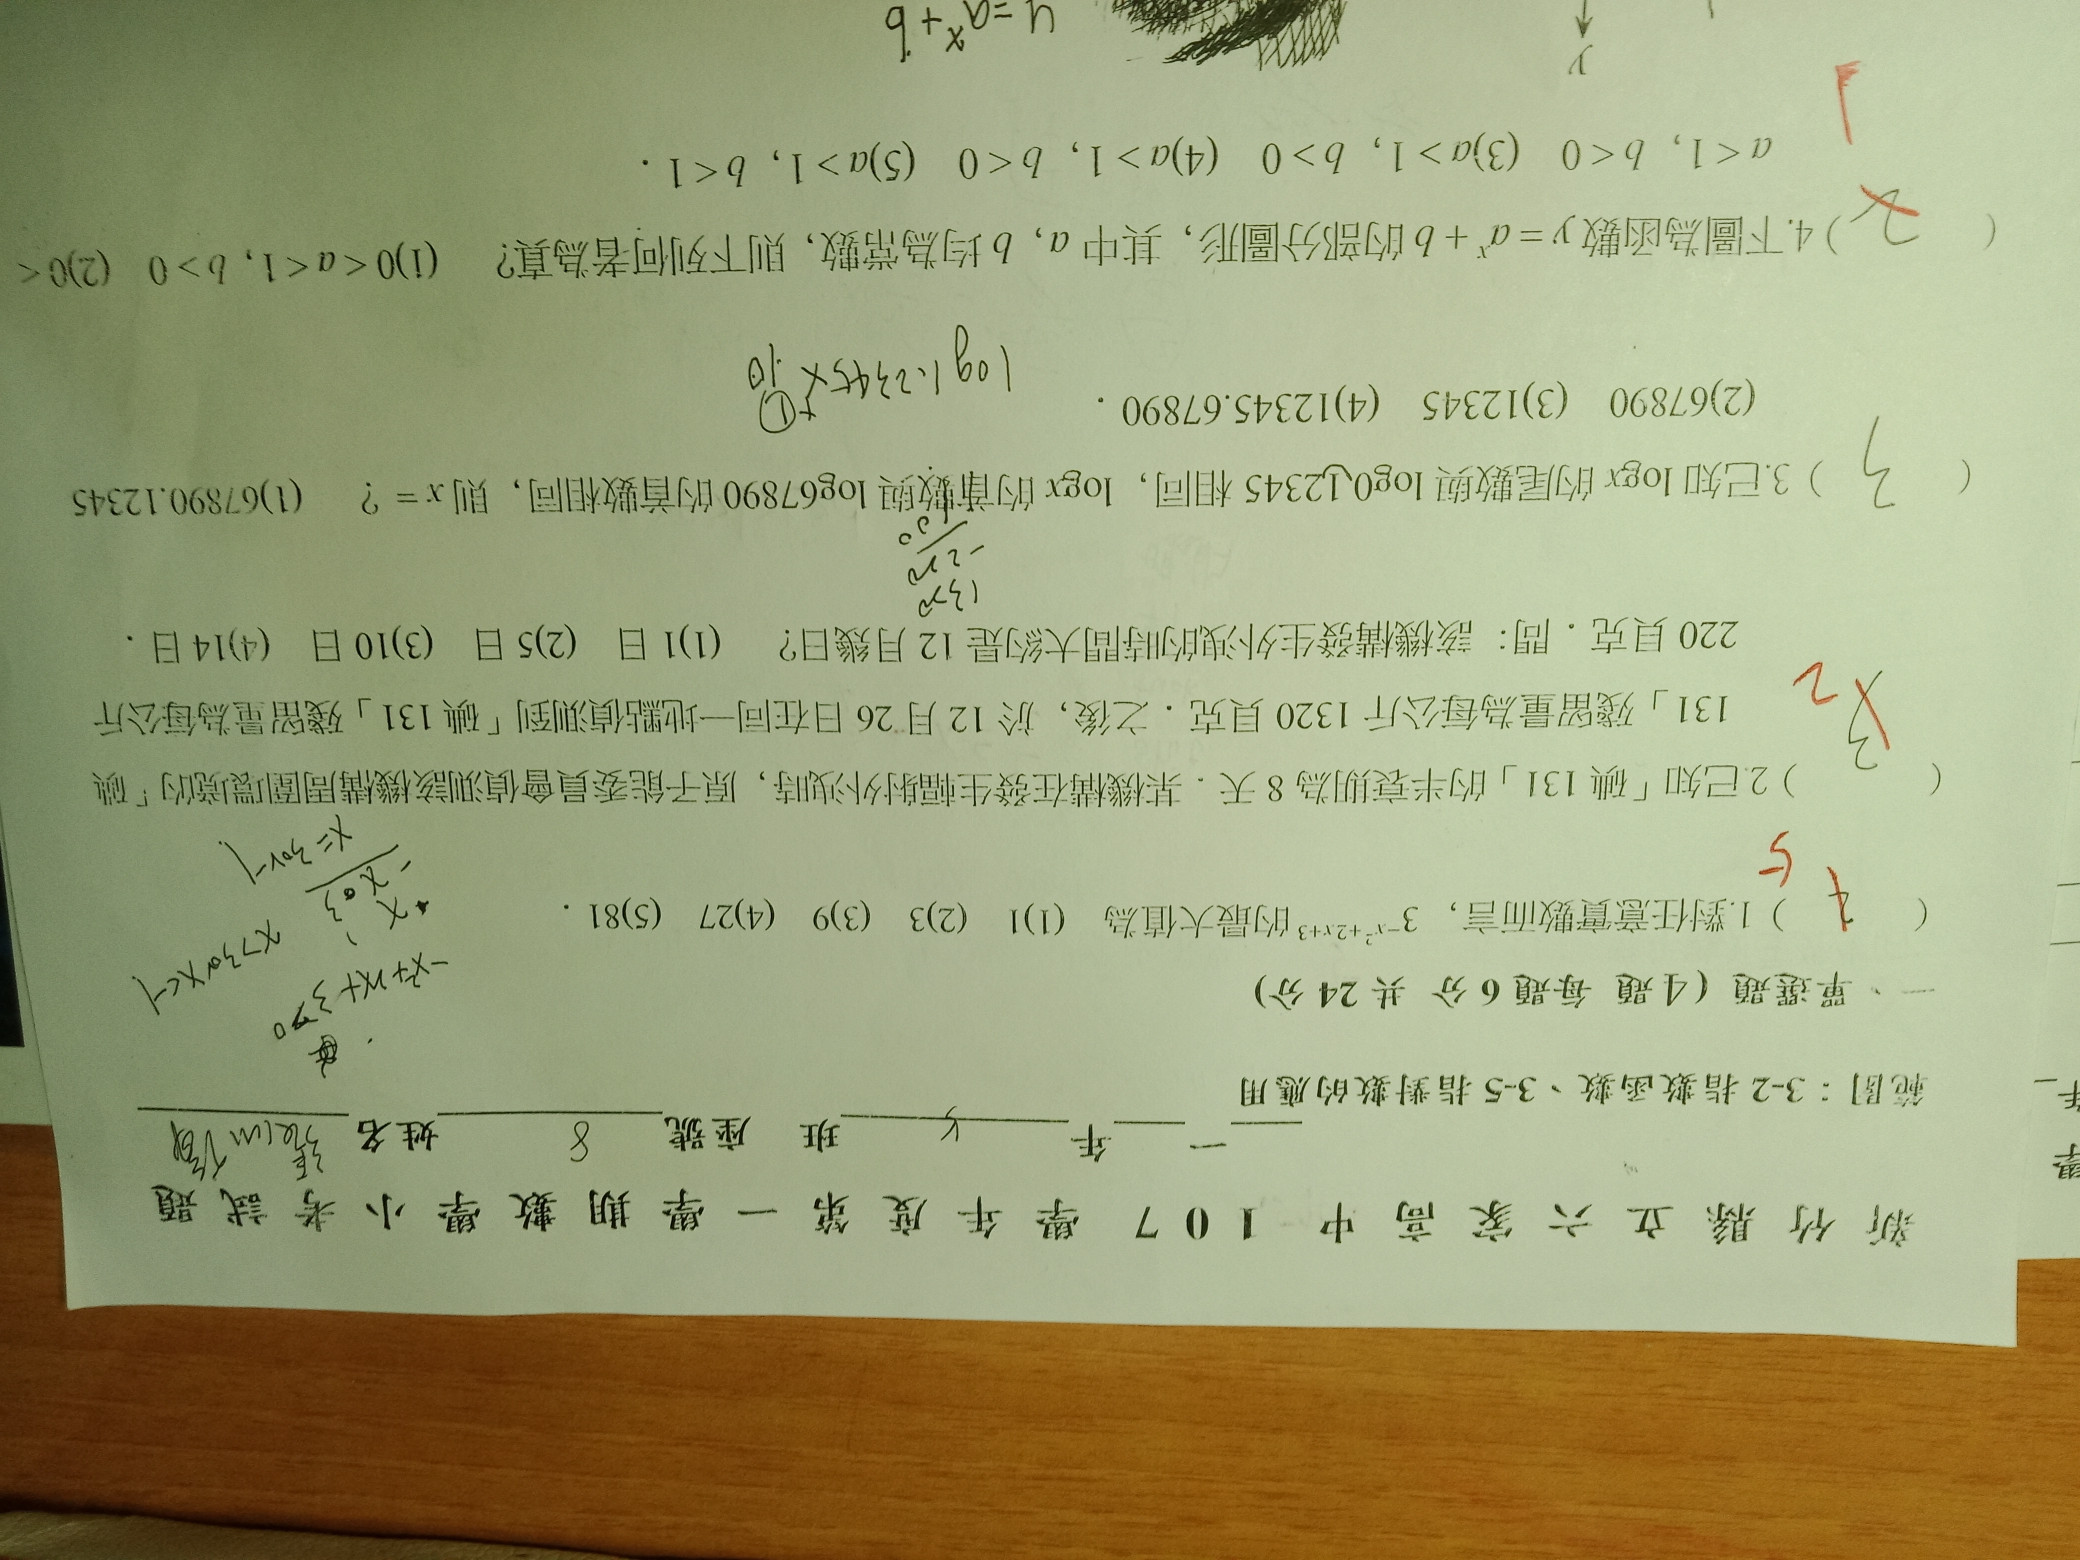 新竹縣立六家高中107學年度第一學期數學小考試題
一年 班 座號 8 姓名
範圍：3-2 指數函數、3-5 指對數的應用
一、單選題 (4 題 每題 6 分 共 24 分)
( ) 1.對任意實數而言，3^{-x^2+2x+3}的最大值為 (1)1 (2)3 (3)9 (4)27 (5)81．
5
x>3or x<-1
x=3or-1
( 3 ) 2.已知「碘 131」的半衰期為 8 天．某機構在發生輻射外洩時，原子能委員會偵測該機構周圍環境的「碘
131」殘留量為每公斤 1320 貝克．之後，於 12 月 26 日在同一地點偵測到「碘 131」殘留量為每公斤
2
220 貝克．問：該機構發生外洩的時間大約是 12 月幾日？ (1)1 日 (2)5 日 (3)10 日 (4)14 日．
( 3 ) 3.已知 logx 的尾數與 log0.12345 相同，logx 的首數與 log67890 的首數相同，則 x = ？ (1)67890.12345
(2)67890 (3)12345 (4)12345.67890．
log 1.2345 x 10
( 2 ) 4.下圖為函數 y = a^x + b 的部分圖形，其中 a，b 均為常數，則下列何者為真？ (1)0 < a < 1，b > 0 (2)0 <
a < 1，b < 0 (3)a > 1，b > 0 (4)a > 1，b < 0 (5)a > 1，b < 1．
1
y
y=a^x+b